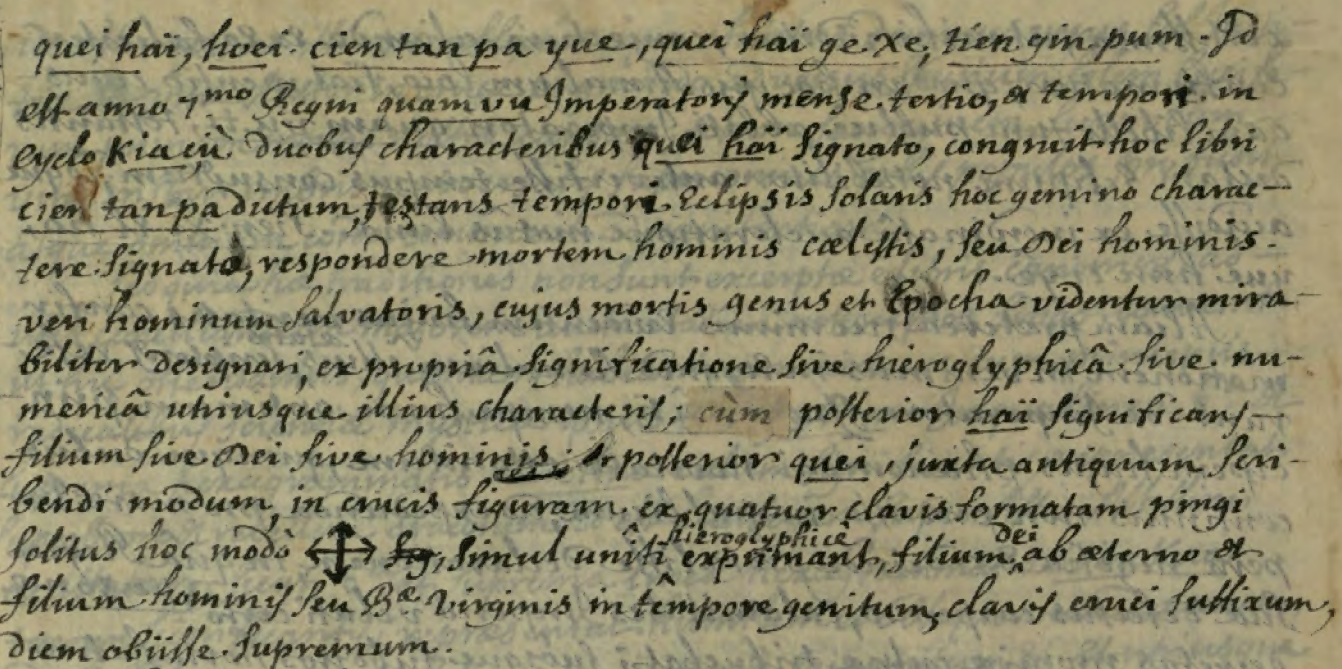 quei haï, hoei cien tan pa yue, quei haï ge xe, tien gin pum. Id
est anno 7mo Regni quam vu Imperatoris mense tertio, et tempori in
cyclo Kia çù duobus characteribus quei haï signato, congruit hoc libri
cien tan pa dictum, testans tempori Eclipsis solaris hoc gemino charac-
tere signato, respondere mortem hominis cælestis, seu Dei hominis
veri hominum salvatoris, cujus mortis genus et Epocha videntur mira-
biliter designari, ex propriâ significatione sive hieroglyphicâ sive nu-
mericâ utriusque illius characteris; cùm posterior haï significans
filium sive Dei sive hominis posterior quei, juxta antiquum scri-
bendi modum, in crucis figuram ex quatuor clavis formatam pingi
solitus hoc modò simul uniti hieroglyphicè exprimant, filium dei ab æterno et
filium hominis seu Bæ Virginis in tempore genitum, clavis cruci suffixum,
diem obiisse supremum.